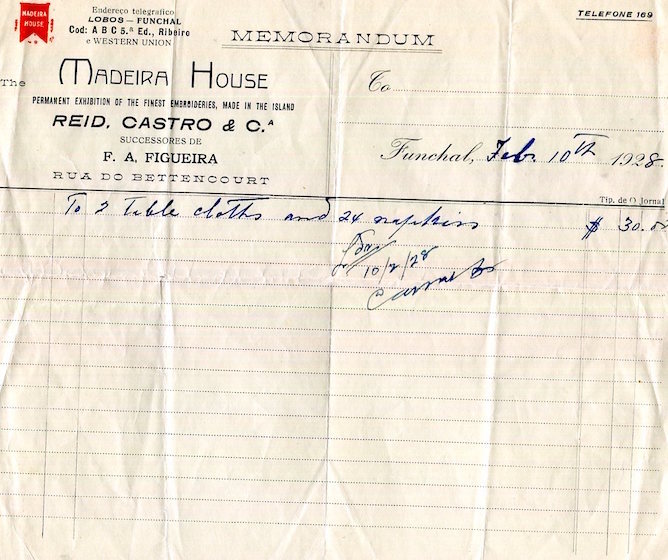 MADEIRA
HOUSE
Endereço telegrafico
LOBOS — FUNCHAL
Cod: A B C 5.ª Ed., Ribeiro
e WESTERN UNION
TELEFONE 169
MEMORANDUM
The MADEIRA HOUSE
PERMANENT EXHIBITION OF THE FINEST EMBROIDERIES, MADE IN THE ISLAND
REID, CASTRO & C.ᴬ
SUCCESSORES DE
F. A. FIGUEIRA
RUA DO BETTENCOURT
To
Funchal, Feb. 10th 1928.
Tip. de O Jornal
To 2 table cloths and 24 napkins $ 30.00
10/2/28